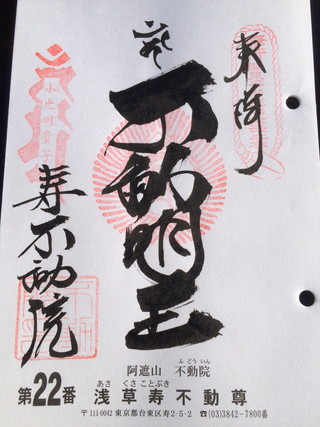 奉拝
不動明王
寿不動院
阿遮山 不動院
ふどういん
第22番 浅草寿不動尊
あさ くさ ことぶき
〒111-0042 東京都台東区寿2-5-2 ☎(03)3842-7800番